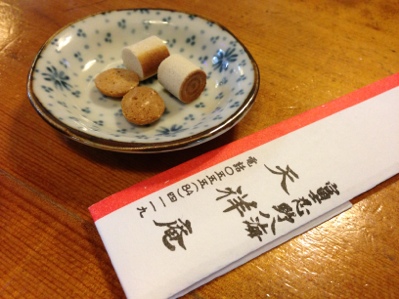 富士忍野八海
天祥庵
電話〇五五五(84)四一一九